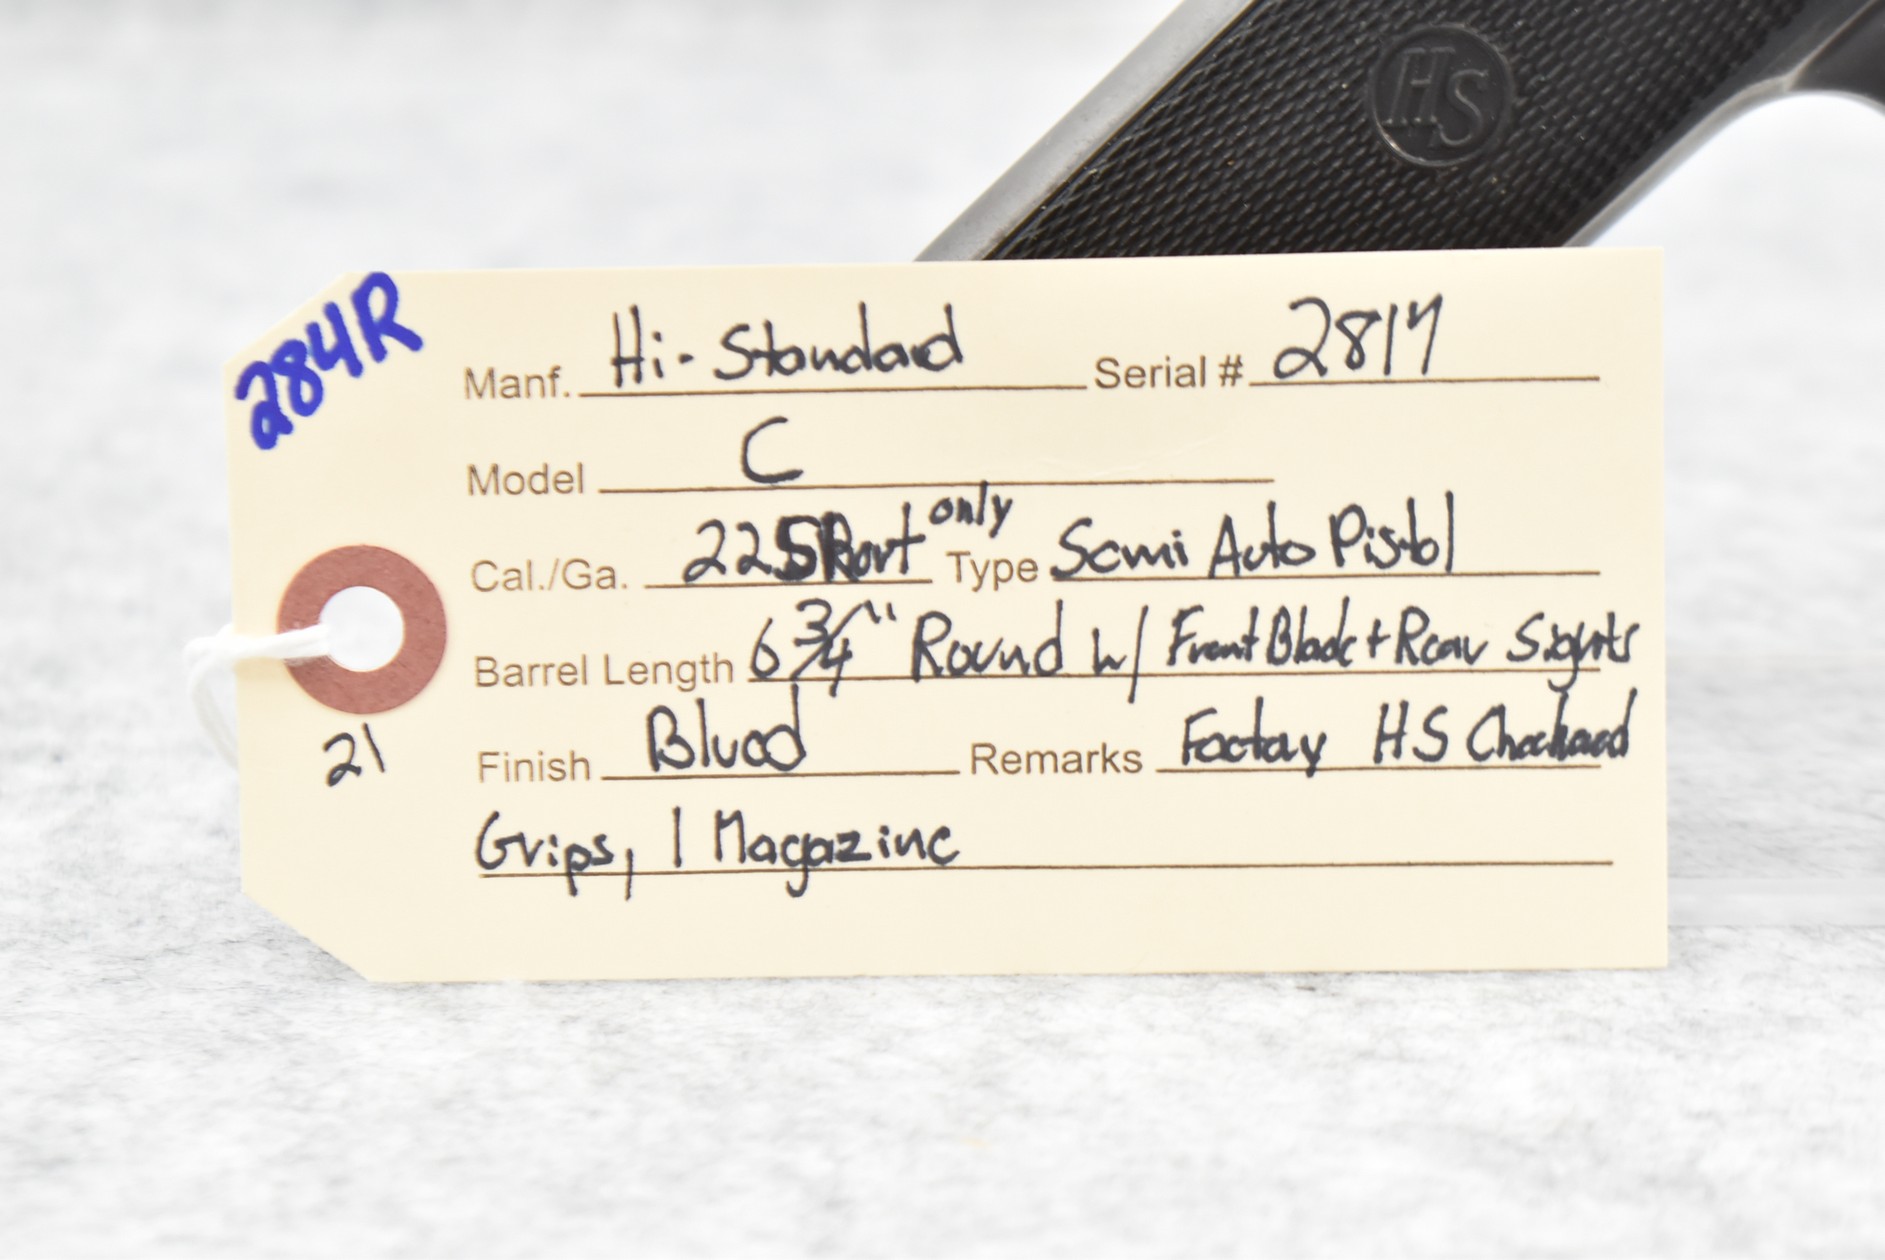 HS
284R
Manf. Hi-Standard Serial # 2817
Model C
Cal./Ga. 22 Short only Type Semi Auto Pistol
Barrel Length 6 3/4" Round w/ Front Blade + Rear Sights
Finish Blued Remarks Factory HS Checkered
Grips, 1 Magazine
21